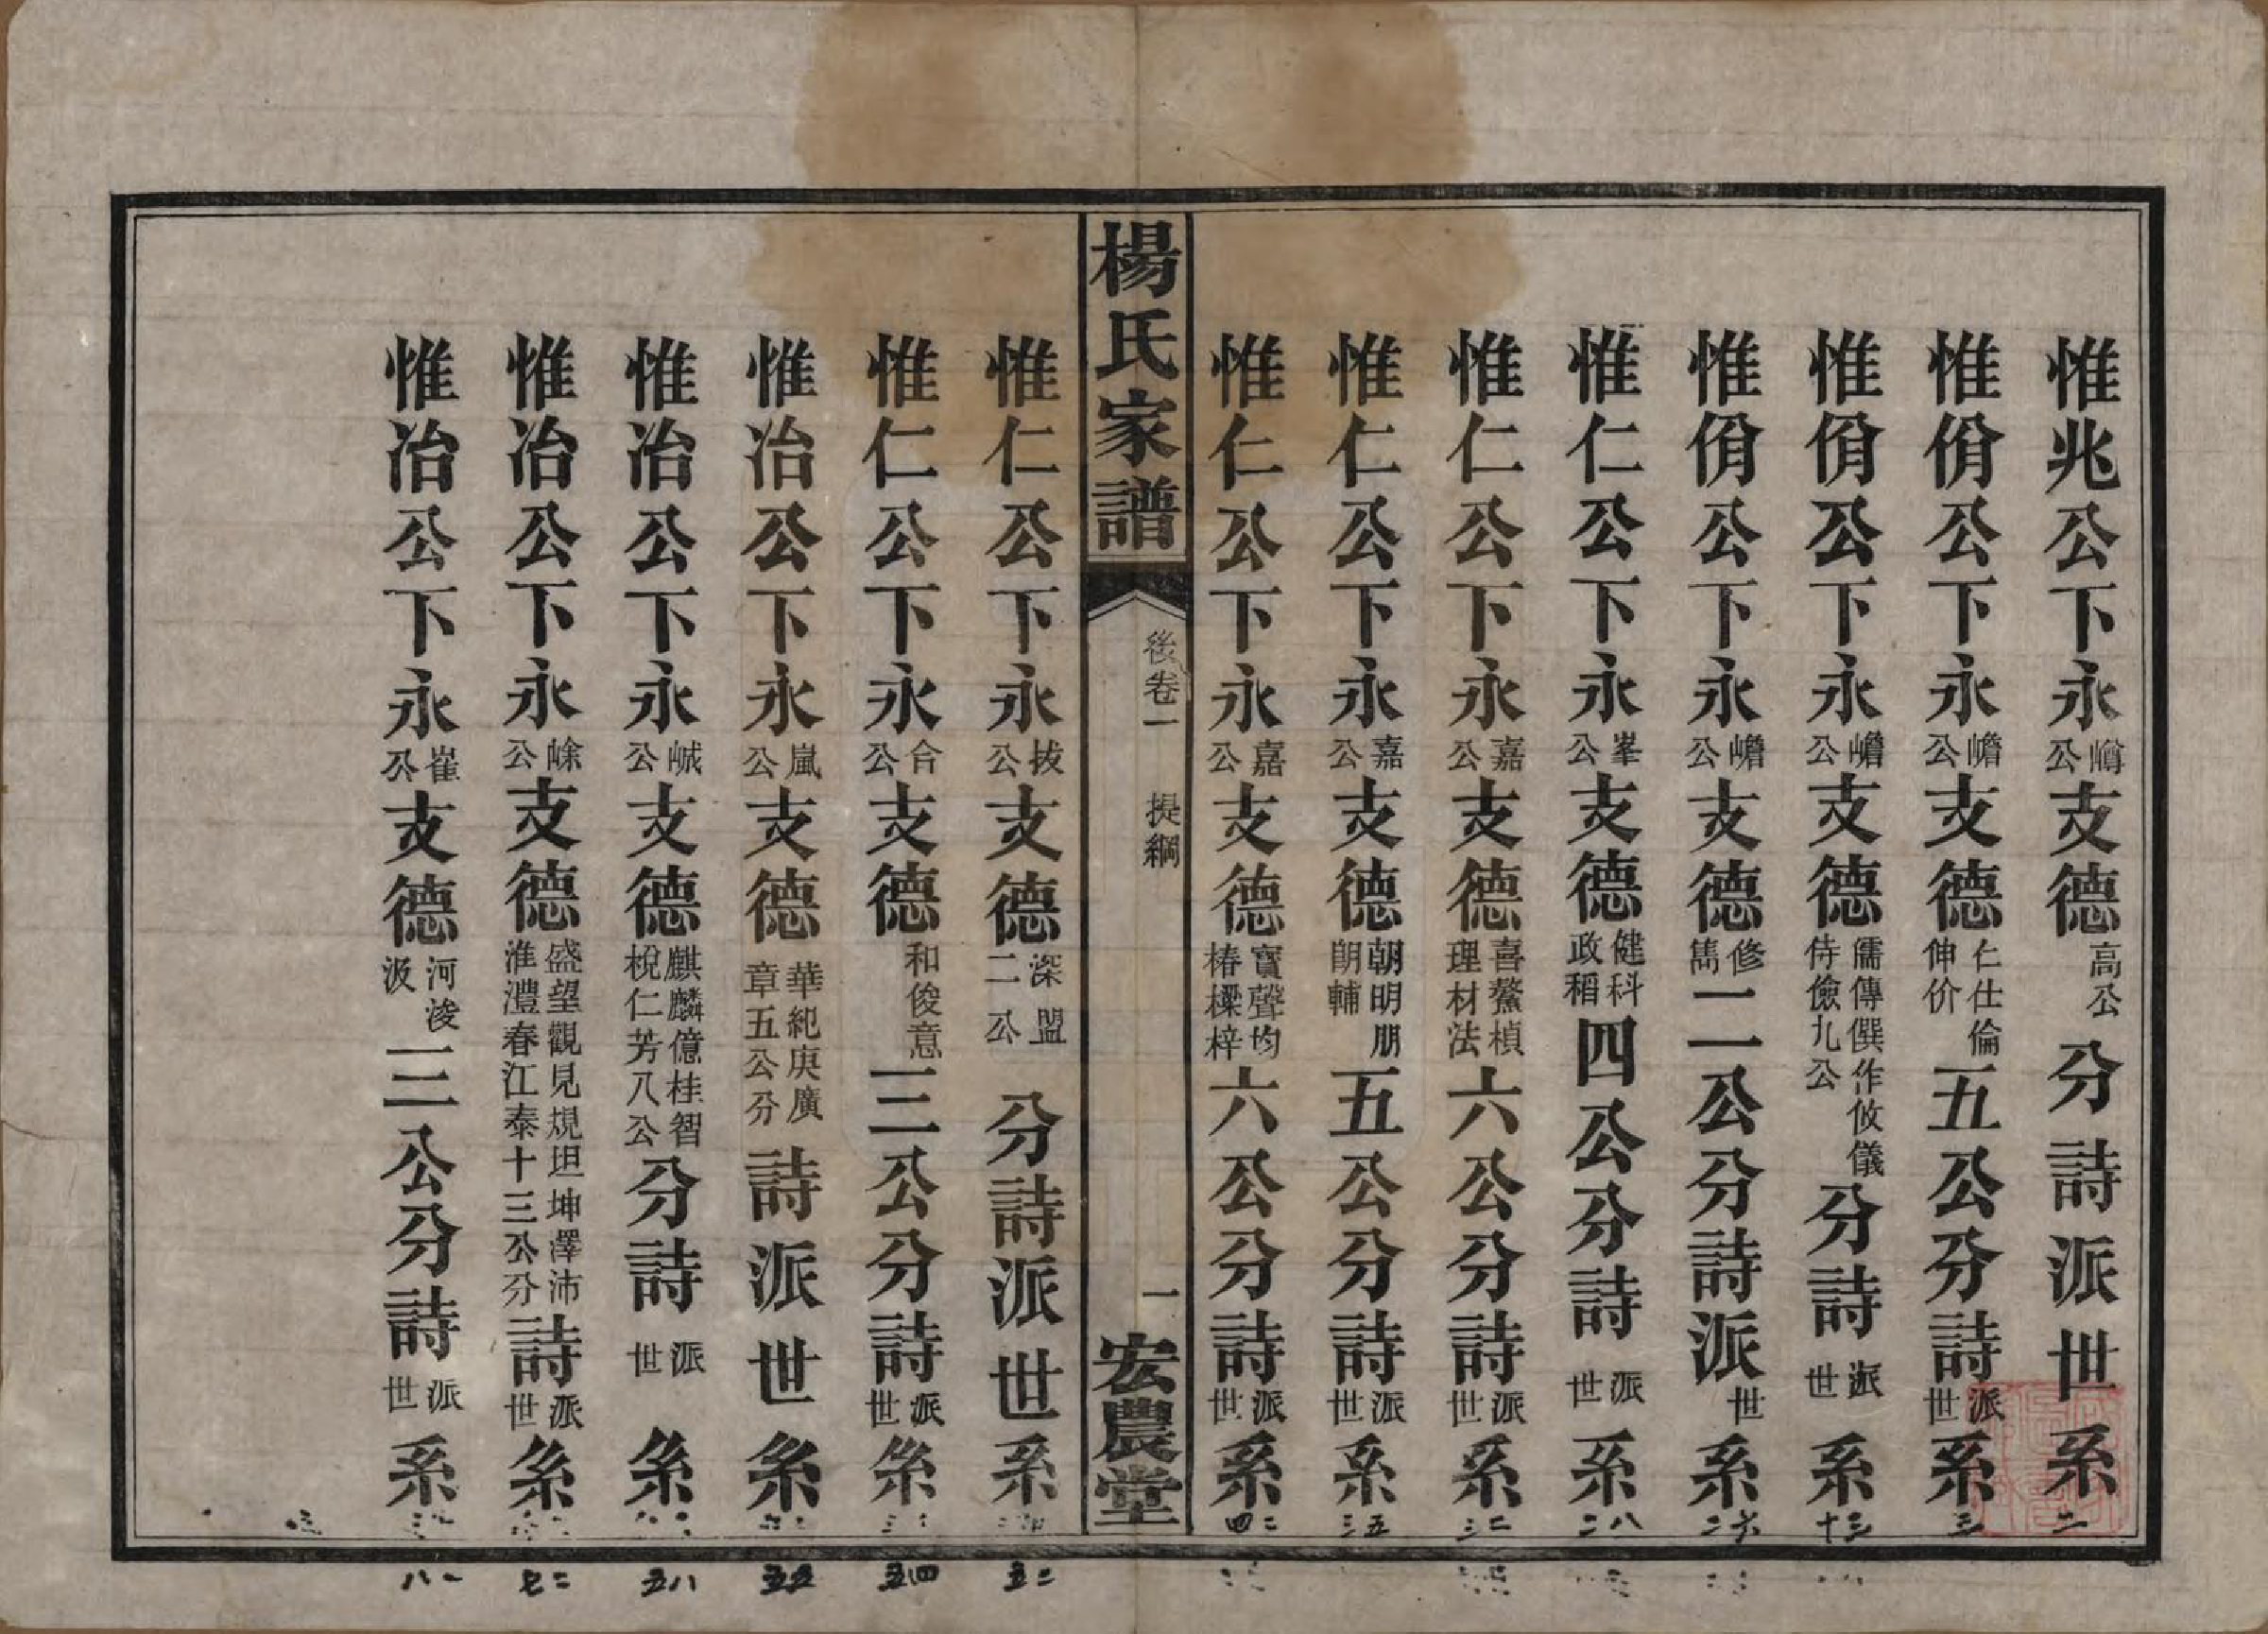 惟兆公下永嶟公支德高公分詩派世系 二
惟佾公下永嶦公支德仁仕倫伸价五公分詩派世系 三
惟佾公下永嶦公支德儒傳僎作攸儀侍儉九公分詩派世系 十三
惟佾公下永嶦公支德修雋二公分詩派世系 二六
惟仁公下永峯公支德健科政稻四公分詩派世系 二八
惟仁公下永嘉公支德喜鰲楨理材法六公分詩派世系 三二
惟仁公下永嘉公支德朝明朋朗輔五公分詩派世系 三五
惟仁公下永嘉公支德寶聲均椿樑梓六公分詩派世系 四二
楊氏家譜 後卷一 提綱 一 宏農堂
惟仁公下永拔公支德深盟二公分詩派世系 五二
惟仁公下永合公支德和俊意三公分詩派世系 五四
惟冶公下永嵐公支德華紀庚廣章五公分詩派世系 五五
惟冶公下永峸公支德麒麟億桂智梲仁芳八公分詩派世系 五八
惟冶公下永峹公支德盛望觀見規坦坤澤沛淮澧春江泰十三公分詩派世系 七二
惟冶公下永崔公支德河浚汲三公分詩派世系 八一